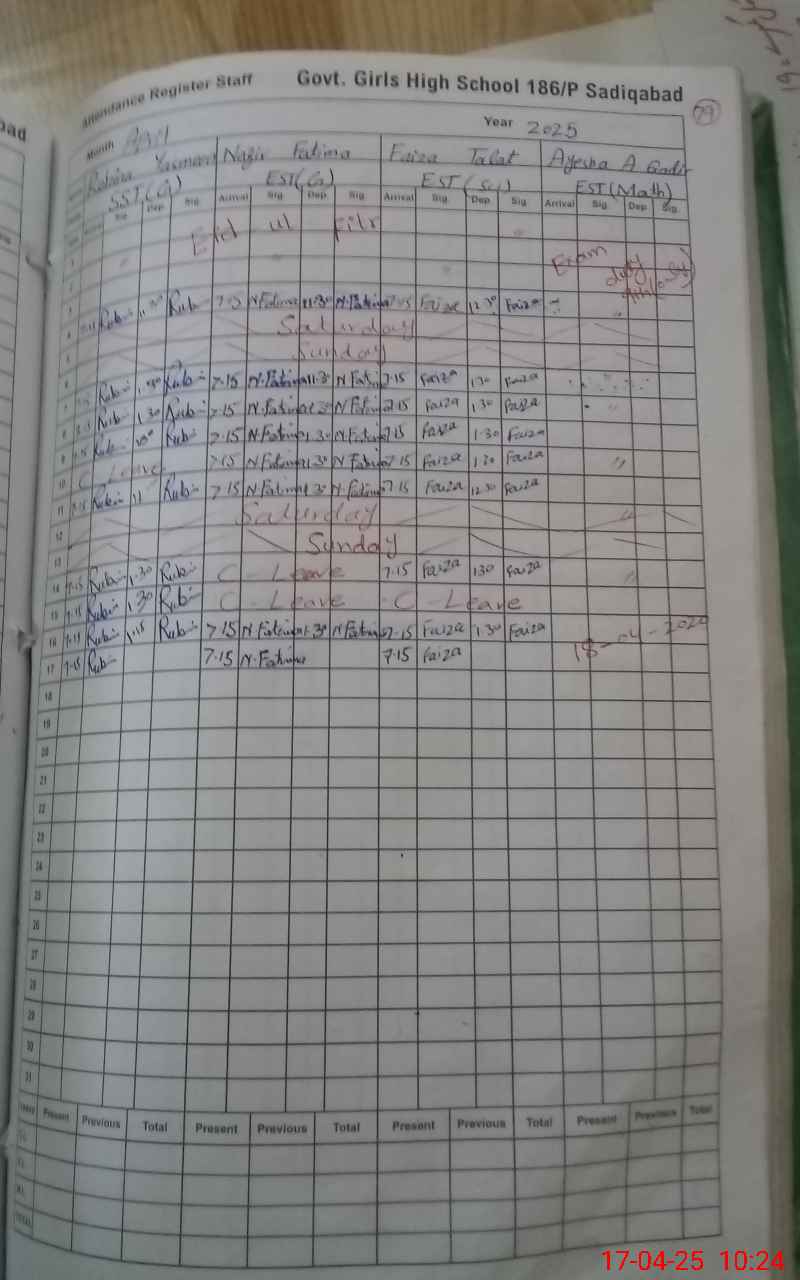 Attendance Register Staff Govt. Girls High School 186/P Sadiqabad 79
Month April Year 2025
Robina Yasmeen Nazir Fatima Faiza Talat Ayesha A Qadir
SST(G) EST(G) EST(Sci) EST(Math)
Sig Dep Sig Arrival Sig Dep Sig Arrival Sig Dep Sig Arrival Sig Dep Sig
1 Eid ul Fitr
2 Exam duty
3
4 Rubi Rubi 7.15 N.Fatima 11.30 N.Fatima 7.15 Faiza 12.30 Faiza "
5 Saturday
Sunday
7.15 Rubi 1.30 Rubi 7.15 N.Fatima 1.30 N Fatima 7.15 Faiza 1.30 Faiza
8 7.15 Rubi 1.30 Rubi 7.15 N.Fatima 1.30 N Fatima 7.15 Faiza 1.30 Faiza "
9 7.15 Rubi Rubi 7.15 N.Fatima 1.30 N.Fatima 7.15 Faiza 1.30 Faiza
10 C Leave 7.15 N.Fatima 1.30 N.Fatima 7.15 Faiza 1.30 Faiza "
11 7.15 Rubi 11 Rubi 7.15 N.Fatima 11.30 N.Fatima 7.15 Faiza 12.30 Faiza
12 Saturday "
13 Sunday
14 7.15 Rubi 1.30 Rubi C Leave 7.15 Faiza 1.30 Faiza "
15 7.15 Rubi 1.30 Rubi C - Leave C - Leave
16 7.15 Rubi 1.15 Rubi 7.15 N.Fatima 1.30 N.Fatima 7.15 Faiza 1.30 Faiza 18-04-202
17 7.15 Rubi 7.15 N.Fatima 7.15 Faiza
18
19
20
21
22
23
24
25
26
27
28
29
30
31
Present Previous Total Present Previous Total Present Previous Total Present Previous Total
TOTAL
17-04-25 10:24